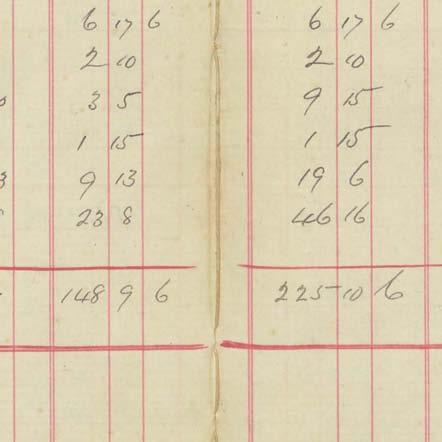 6 17 6 6 17 6
2 10 2 10
3 5 9 15
1 15 1 15
9 13 19 6
23 8 46 16
148 9 6 225 10 6